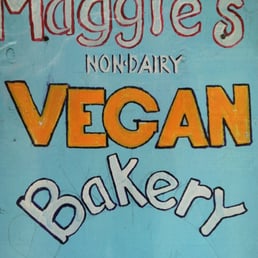 Maggie's
NON-DAIRY
VEGAN
Bakery